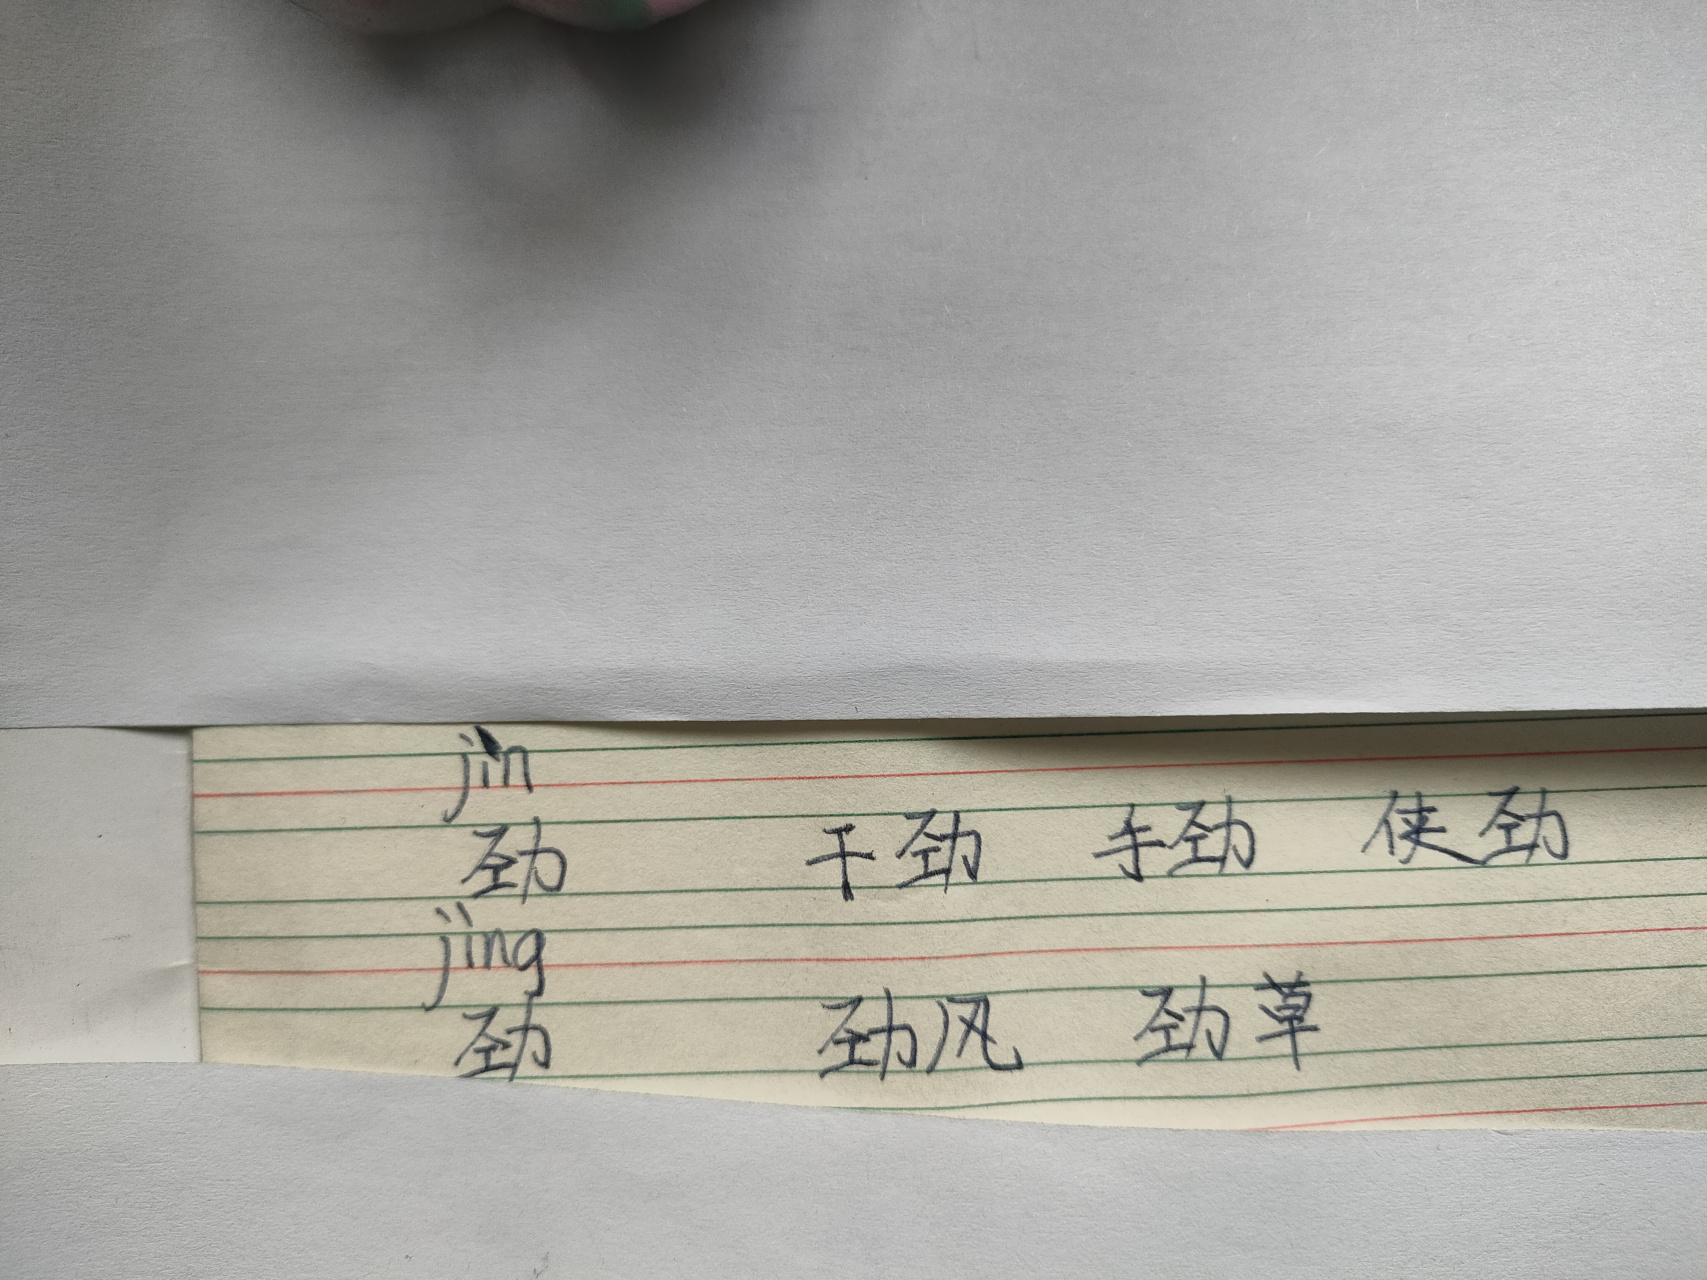 jìn
劲 干劲 手劲 侠劲
jìng
劲 劲风 劲草